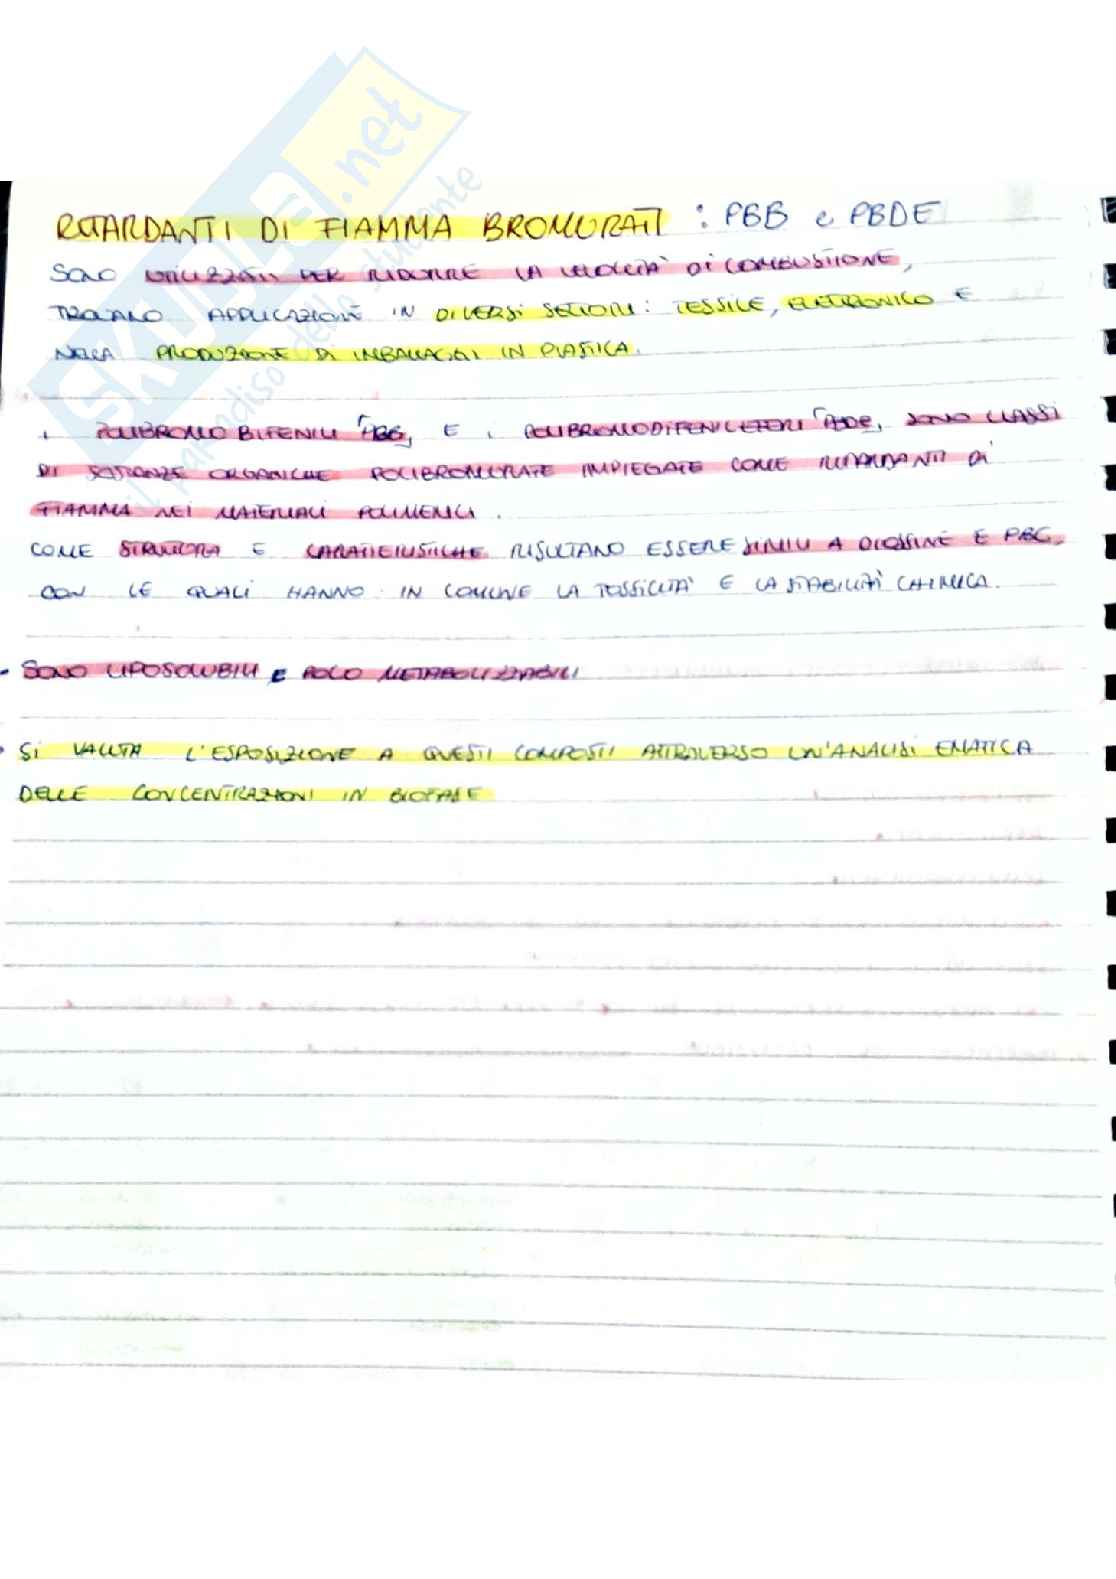 SKUOLA.net
il paradiso dello studente
RITARDANTI DI FIAMMA BROMURATI : PBB e PBDE
SONO UTILIZZATI PER RIDURRE LA VELOCITÀ DI COMBUSTIONE,
TROVANO APPLICAZIONE IN DIVERSI SETTORI: TESSILE, ELETTRONICO E
NELLA PRODUZIONE DI IMBALLAGGI IN PLASTICA.
I POLIBROMOBIFENILI "PBB", E I POLIBROMODIFENILETERI "PBDE", SONO CLASSI
DI SOSTANZE ORGANICHE POLIBROMURATE IMPIEGATE COME RITARDANTI DI
FIAMMA NEI MATERIALI POLIMERICI.
COME STRUTTURA E CARATTERISTICHE RISULTANO ESSERE SIMILI A DIOSSINE E PBC,
CON LE QUALI HANNO IN COMUNE LA TOSSICITÀ E LA STABILITÀ CHIMICA.
• SONO LIPOSOLUBILI E POCO METABOLIZZABILI
• SI VALUTA L'ESPOSIZIONE A QUESTI COMPOSTI ATTRAVERSO UN'ANALISI EMATICA
DELLE CONCENTRAZIONI IN BIOFASE